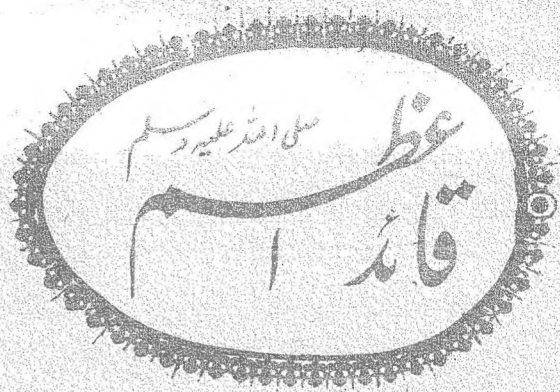 قائد اعظم
صلی اللہ علیہ وسلم